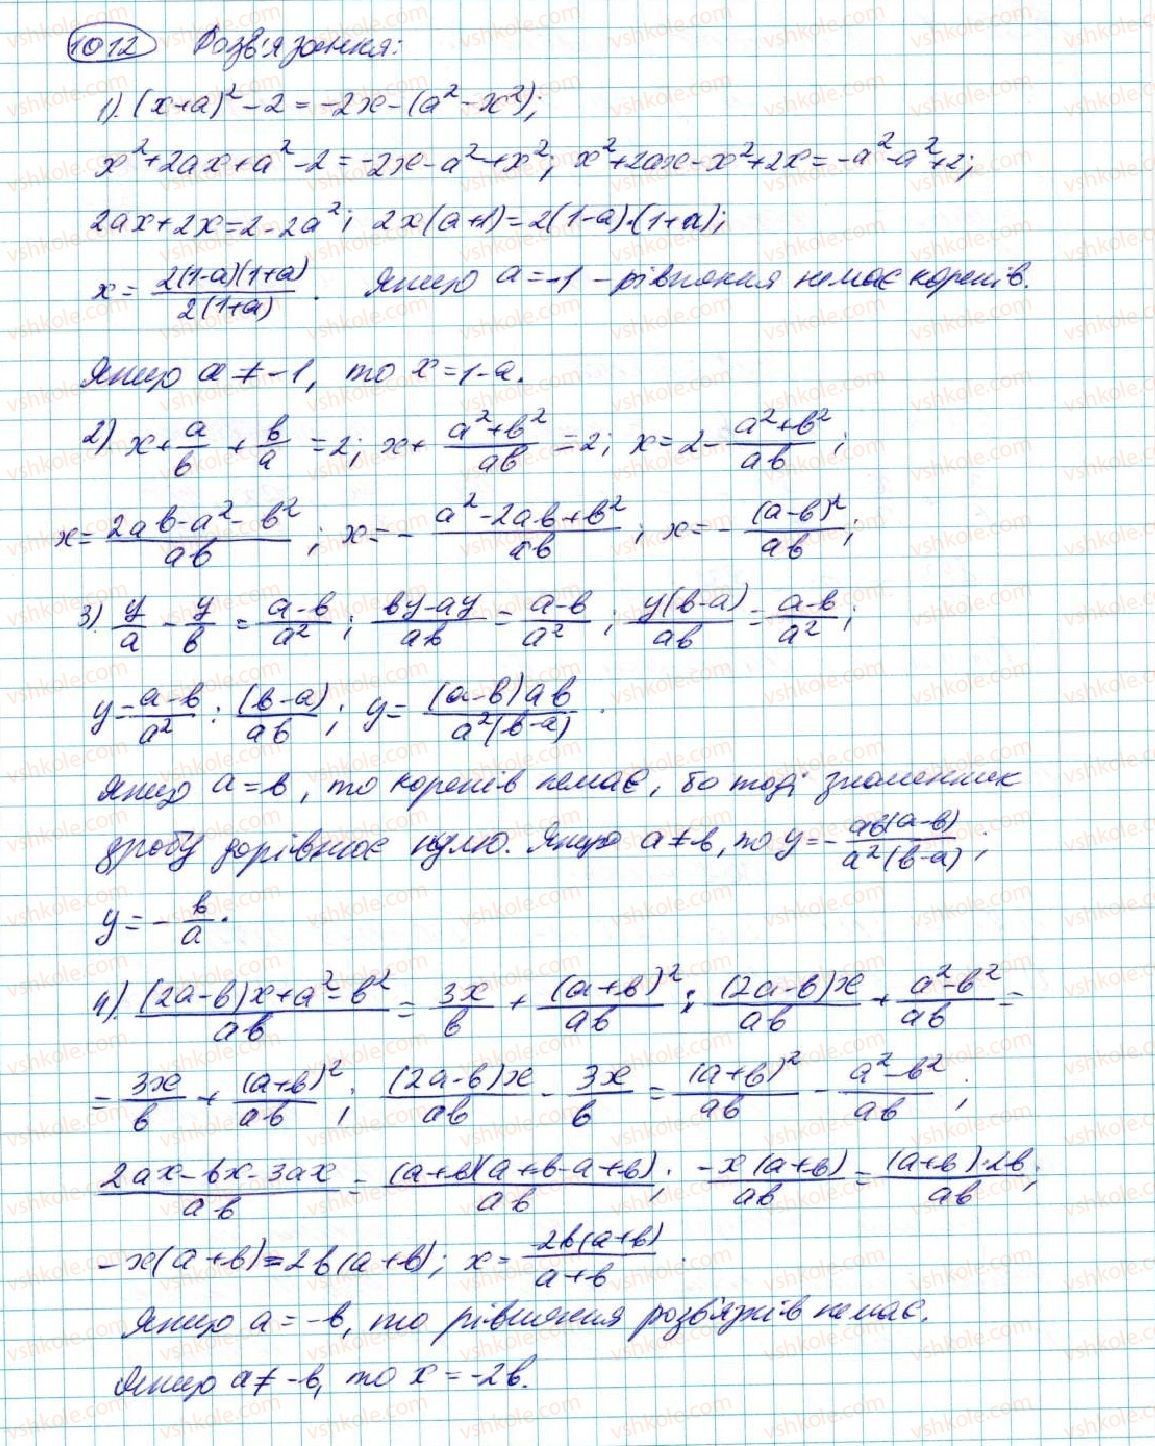 1012 Розв'язання:
1). (x+a)² - 2 = -2x - (a² - x²);
x² + 2ax + a² - 2 = -2x - a² + x²; x² + 2ax - x² + 2x = -a² - a² + 2;
2ax + 2x = 2 - 2a²; 2x(a+1) = 2(1-a)·(1+a);
x = 2(1-a)(1+a) / 2(1+a). Якщо a = -1 – рівняння немає коренів.
Якщо a ≠ -1, то x = 1-a.
2). x + a/b + b/a = 2; x + (a²+b²)/ab = 2; x = 2 - (a²+b²)/ab;
x = (2ab-a²-b²)/ab; x = - (a²-2ab+b²)/ab; x = - (a-b)²/ab;
3). y/a - y/b = (a-b)/a²; (by-ay)/ab = (a-b)/a²; y(b-a)/ab = (a-b)/a²;
y = (a-b)/a² : (b-a)/ab; y = (a-b)ab / a²(b-a).
Якщо a = b, то коренів немає, бо тоді знаменник
дробу дорівнює нулю. Якщо a ≠ b, то y = - ab(a-b) / a²(b-a);
y = - b/a.
4). ((2a-b)x+a²-b²)/ab = 3x/b + (a+b)²/ab; (2a-b)x/ab + (a²-b²)/ab =
= 3x/b + (a+b)²/ab; (2a-b)x/ab - 3x/b = (a+b)²/ab - (a²-b²)/ab;
(2ax-bx-3ax)/ab = (a+b)(a+b-a+b)/ab; -x(a+b)/ab = (a+b)·2b/ab;
-x(a+b) = 2b(a+b); x = -2b(a+b)/(a+b).
Якщо a = -b, то рівняння розв'язків немає.
Якщо a ≠ -b, то x = -2b.